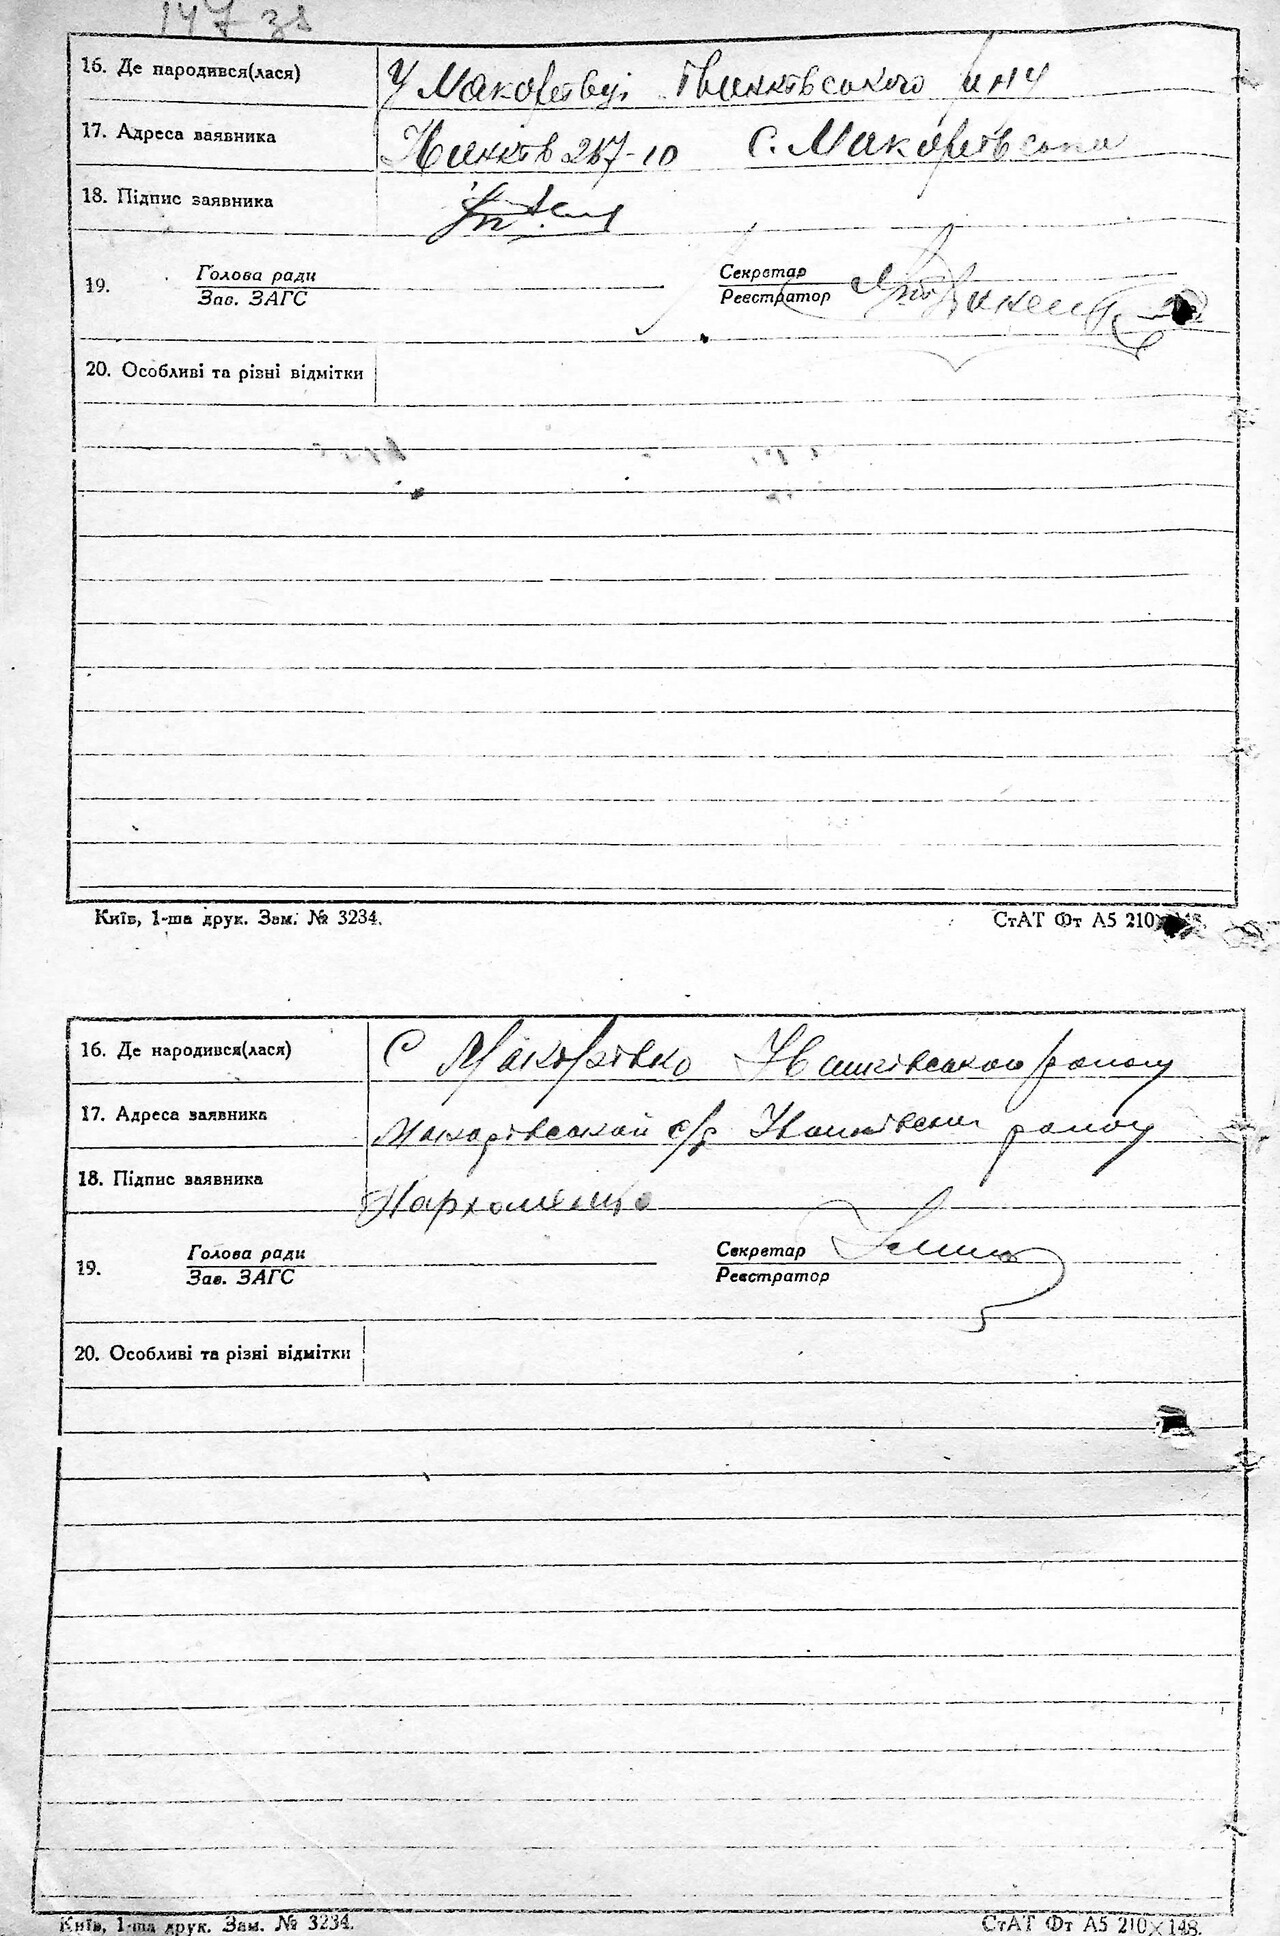 147 зв
16. Де народився(лася) У Макарівці Іванківського р-ну
17. Адреса заявника Іванків 257-10 с. Макарівська
18. Підпис заявника
Голова ради Секретар
19.
Зав. ЗАГС Реєстратор
20. Особливі та різні відмітки
Київ, 1-ша друк. Зам. № 3234. СтАТ Фт А5 210×148.
16. Де народився(лася) С Макарівка Іванківського району
17. Адреса заявника Макарівской с/р Іванківськ району
18. Підпис заявника Пархоменко
Голова ради Секретар
19.
Зав. ЗАГС Реєстратор
20. Особливі та різні відмітки
Київ, 1-ша друк. Зам. № 3234. СтАТ Фт А5 210×148.